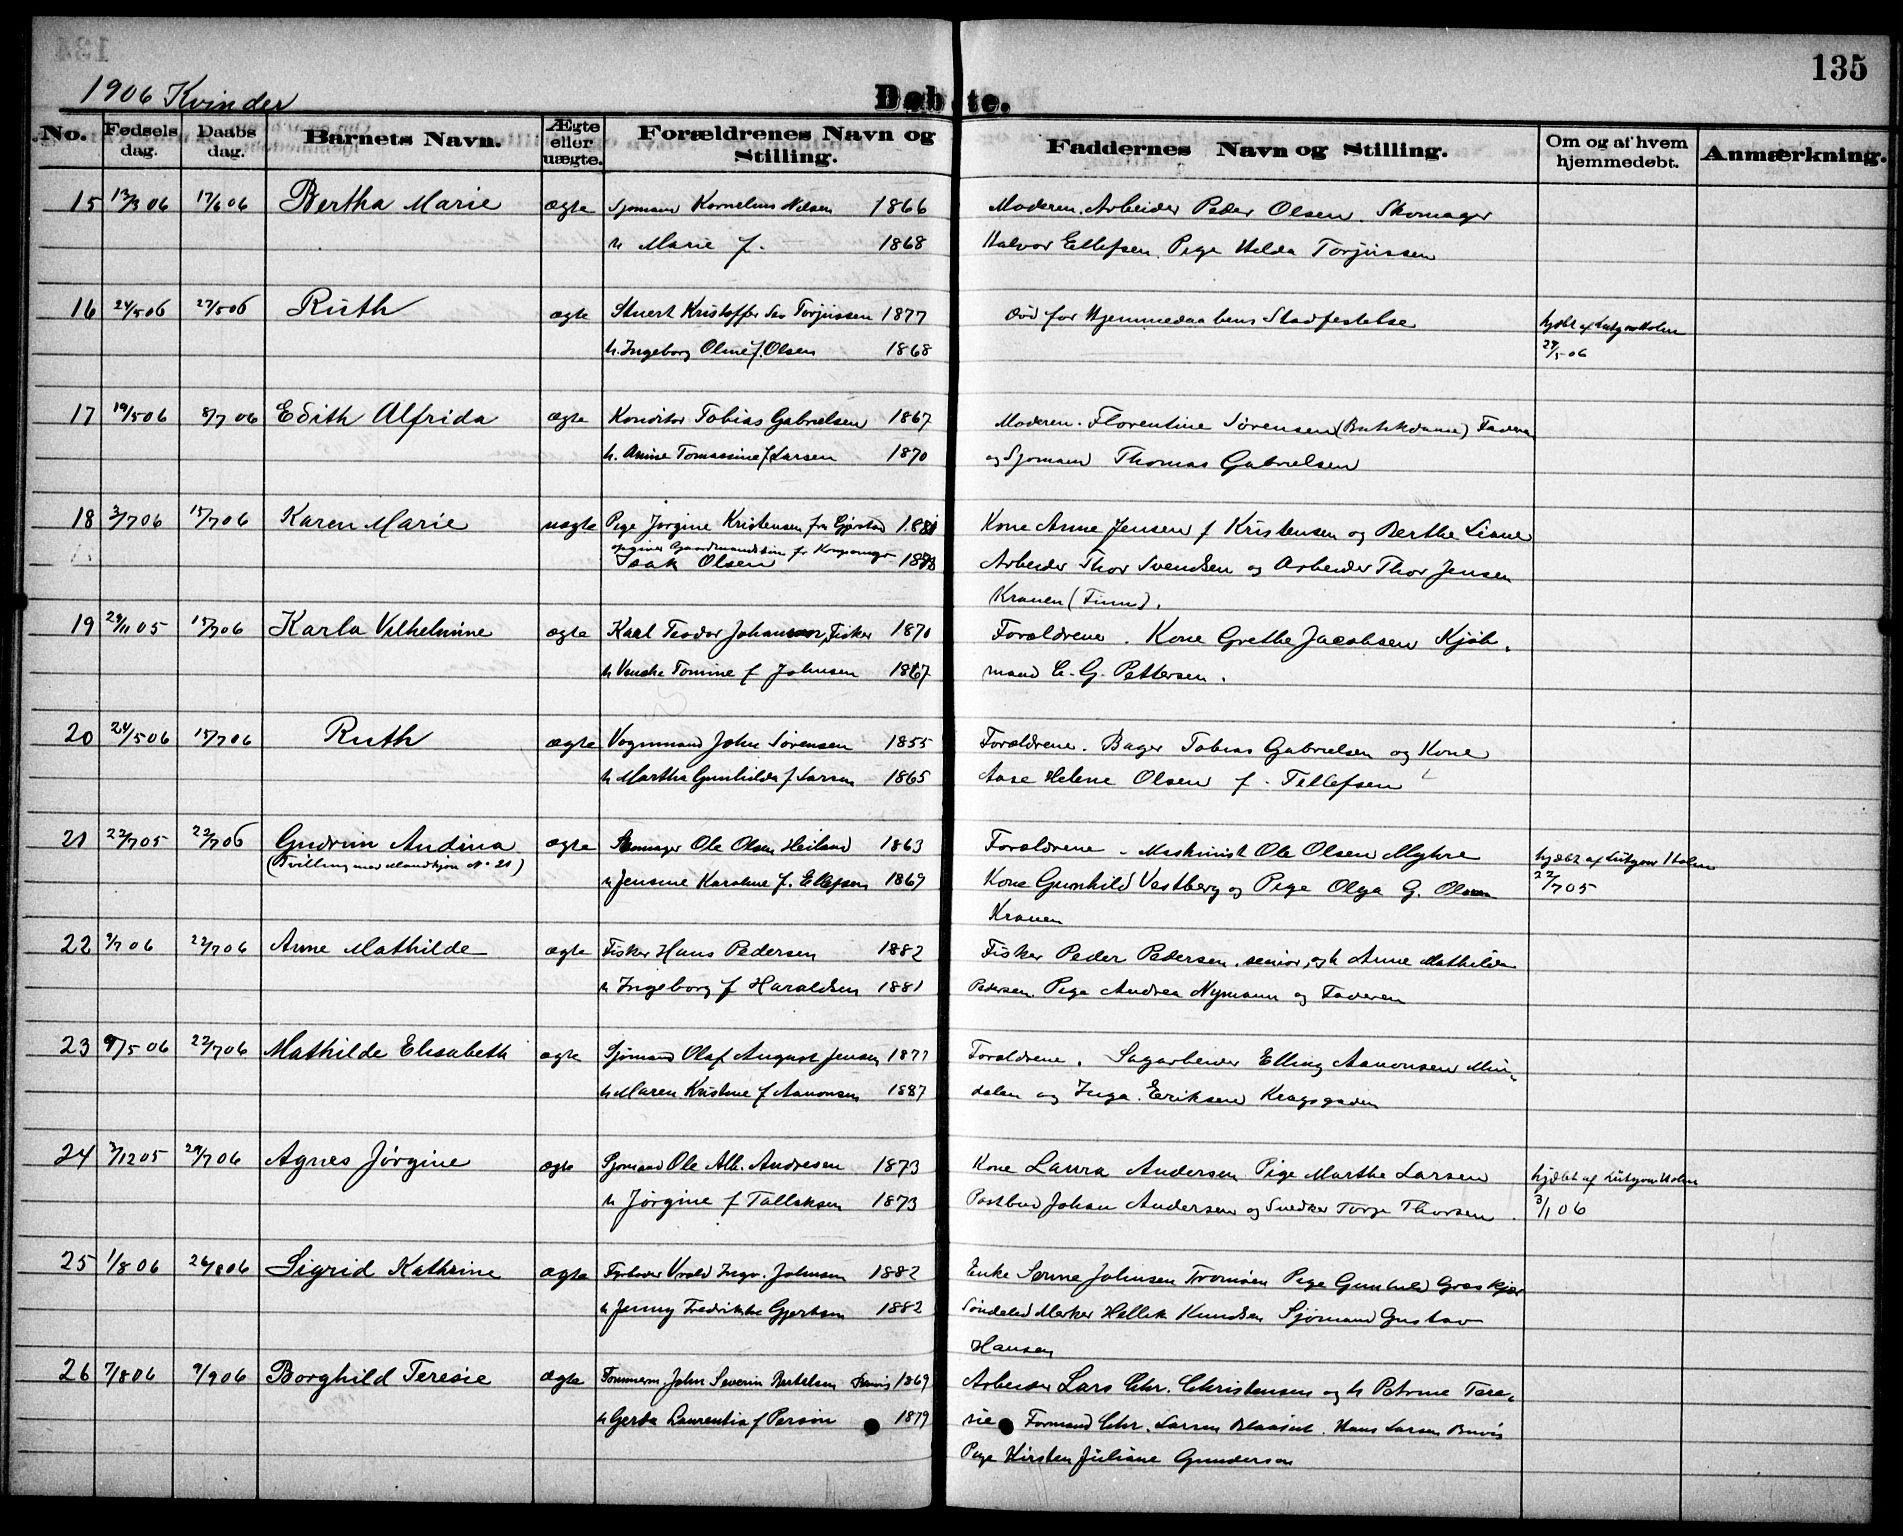 135
1906 Kvinder
Døbte.
No. Fødselsdag. Daabsdag. Barnets Navn. Ægte eller uægte. Forældrenes Navn og Stilling. Faddernes Navn og Stilling. Om og af hvem hjemmedøbt. Anmærkning.
15 13/3 06 17/6 06 Bertha Marie ægte Sjømand Kornelius Nilsen 1866 Moderen. Arbeider Peder Olsen. Skomager
h Marie f. 1868 Halvor Ellefsen. Pige Hilda Torjussen
16 24/5 06 27/5 06 Ruth ægte Stuert Kristoffer Torjussen 1877 død før Hjemmedaabens Stadfestelse hjdbt af Holm
h. Ingeborg Oline f. Olsen 1868 27/5 06
17 19/5 06 8/7 06 Edith Alfrida ægte Konditor Tobias Gabrielsen 1867 Moderen. Florentine Sørensen (Butikdame) Faderen
h. Anine Tomassine f Larsen 1870 og Sjømand Thomas Gabrielsen
18 3/7 06 15/7 06 Karen Marie uægte Pige Jørgine Kristensen fra Gjerstad Kone Anne Jensen f Kristensen og Berthe Liane
opgiver Gaardmandssøn
Isak Olsen 1878 Arbeider Thor Svendsen og Arbeider Thor Jensen
Kranen (Finn).
19 29/11 05 15/7 06 Karla Vilhelmine ægte Karl Teodor Johansen, Fisker 1870 Forældrene. Kone Grethe Jacobsen Kjøb-
h Venche Tomine f Johnsen 1867 mand C. G. Pettersen.
20 24/5 06 15/7 06 Ruth ægte Vognmand John Sørensen 1855 Forældrene. Bager Tobias Gabrielsen og Kone
h Martha Gunhilda f Larsen 1865 Aase Helene Olsen f. Tellefsen
21 22/7 05 22/7 06 Gudrun Andina ægte Skomager Ole Olsen Heiland 1863 Forældrene - Maskinist Ole Olsen Myhre hjdbt af Holm
(Tvilling med Mandkjøn No 21) h Jensine Karoline f. Ellefsen 1869 Kone Gunhild Vestberg og Pige Olga G. Olsen 22/7 05
Kranen
22 9/7 06 22/7 06 Anne Mathilde ægte Fisker Hans Pedersen 1882 Fisker Peder Pedersen, senior, og h Anne Mathilde
h Ingeborg f Haraldsen 1881 Pedersen. Pige Andrea Nymann og Faderen
23 9/5 06 22/7 06 Mathilde Elisabeth ægte Sjømand Olaf August Jensen 1877 Forældrene. Sagarbeider Elling Aanonsen Min-
h Maren Kristine f Aanonsen 1887 dalen og Inga Eriksen Kragsgaden
24 3/12 05 29/7 06 Agnes Jørgine ægte Sjømand Ole Alb. Andresen 1873 Kone Laura Andersen Pige Marthe Larsen hjdbt af Holm
h Jørgine f Tallaksen 1873 Postbud Johan Andersen og Snedker Torje Thorsen. 3/1 06
25 1/8 06 26/8 06 Sigrid Kathrine ægte Fyrbøder Johnsen 1882 Enke Johnsen Tromøen Pige Gunhild
h Jenny Fredrikke Gjertsen 1882 Søndeled Hellik Knudsen Sjømand Gustav
Hansen
26 7/8 06 9/9 06 Borghild Teresie ægte Tømmerm. John Severin Bertelsen 1869 Arbeider Lars Chr. Christensen og h Petrine Tere-
h Gerda Laurentia f Person 1879 sie Formand Chr. Larsen Hans Larsen
Pige Kirsten Juliane Gundersen